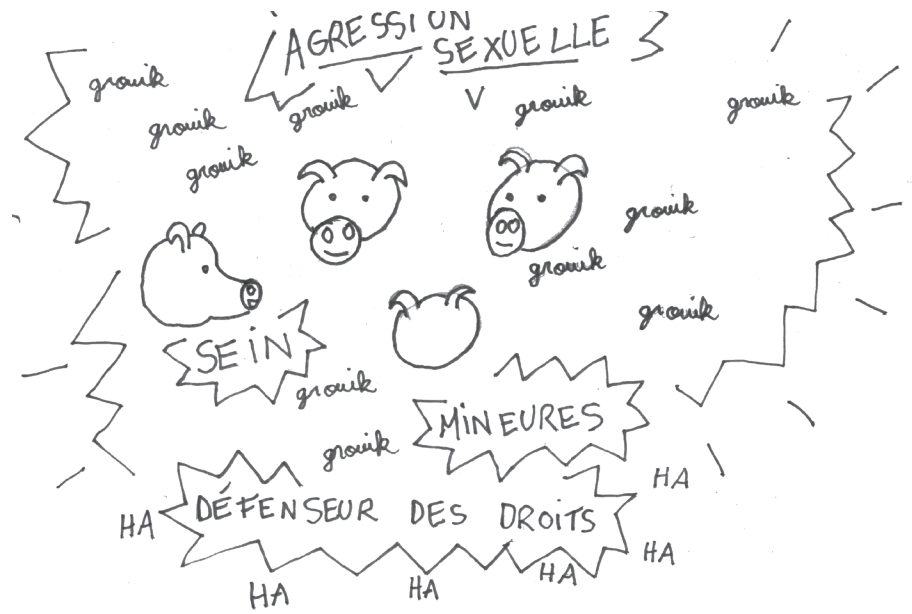 AGRESSION
SEXUELLE
grouik
grouik
grouik
grouik
grouik
grouik
grouik
grouik
grouik
SEIN
grouik
MINEURES
grouik
HA
HA
DÉFENSEUR DES DROITS
HA
HA
HA
HA